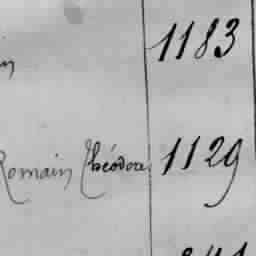 1183
Romain Théodore 1129